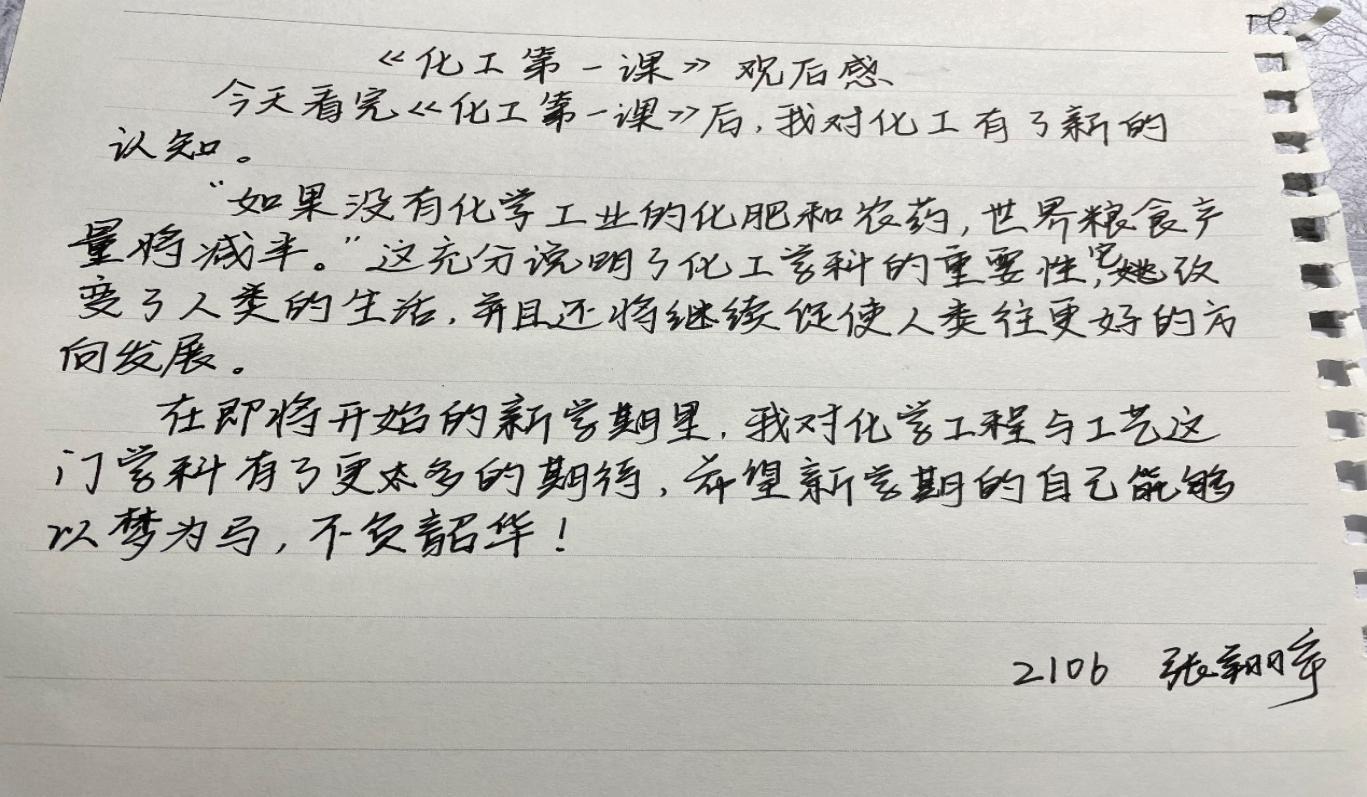 《化工第一课》观后感
今天看完《化工第一课》后,我对化工有了新的
认知。
“如果没有化学工业的化肥和农药,世界粮食产
量将减半。”这充分说明了化工学科的重要性,它改
变了人类的生活,并且还将继续促使人类往更好的方
向发展。
在即将开始的新学期里,我对化学工程与工艺这
门学科有了更太多的期待,希望新学期的自己能够
以梦为马,不负韶华!
2106 张翔宇